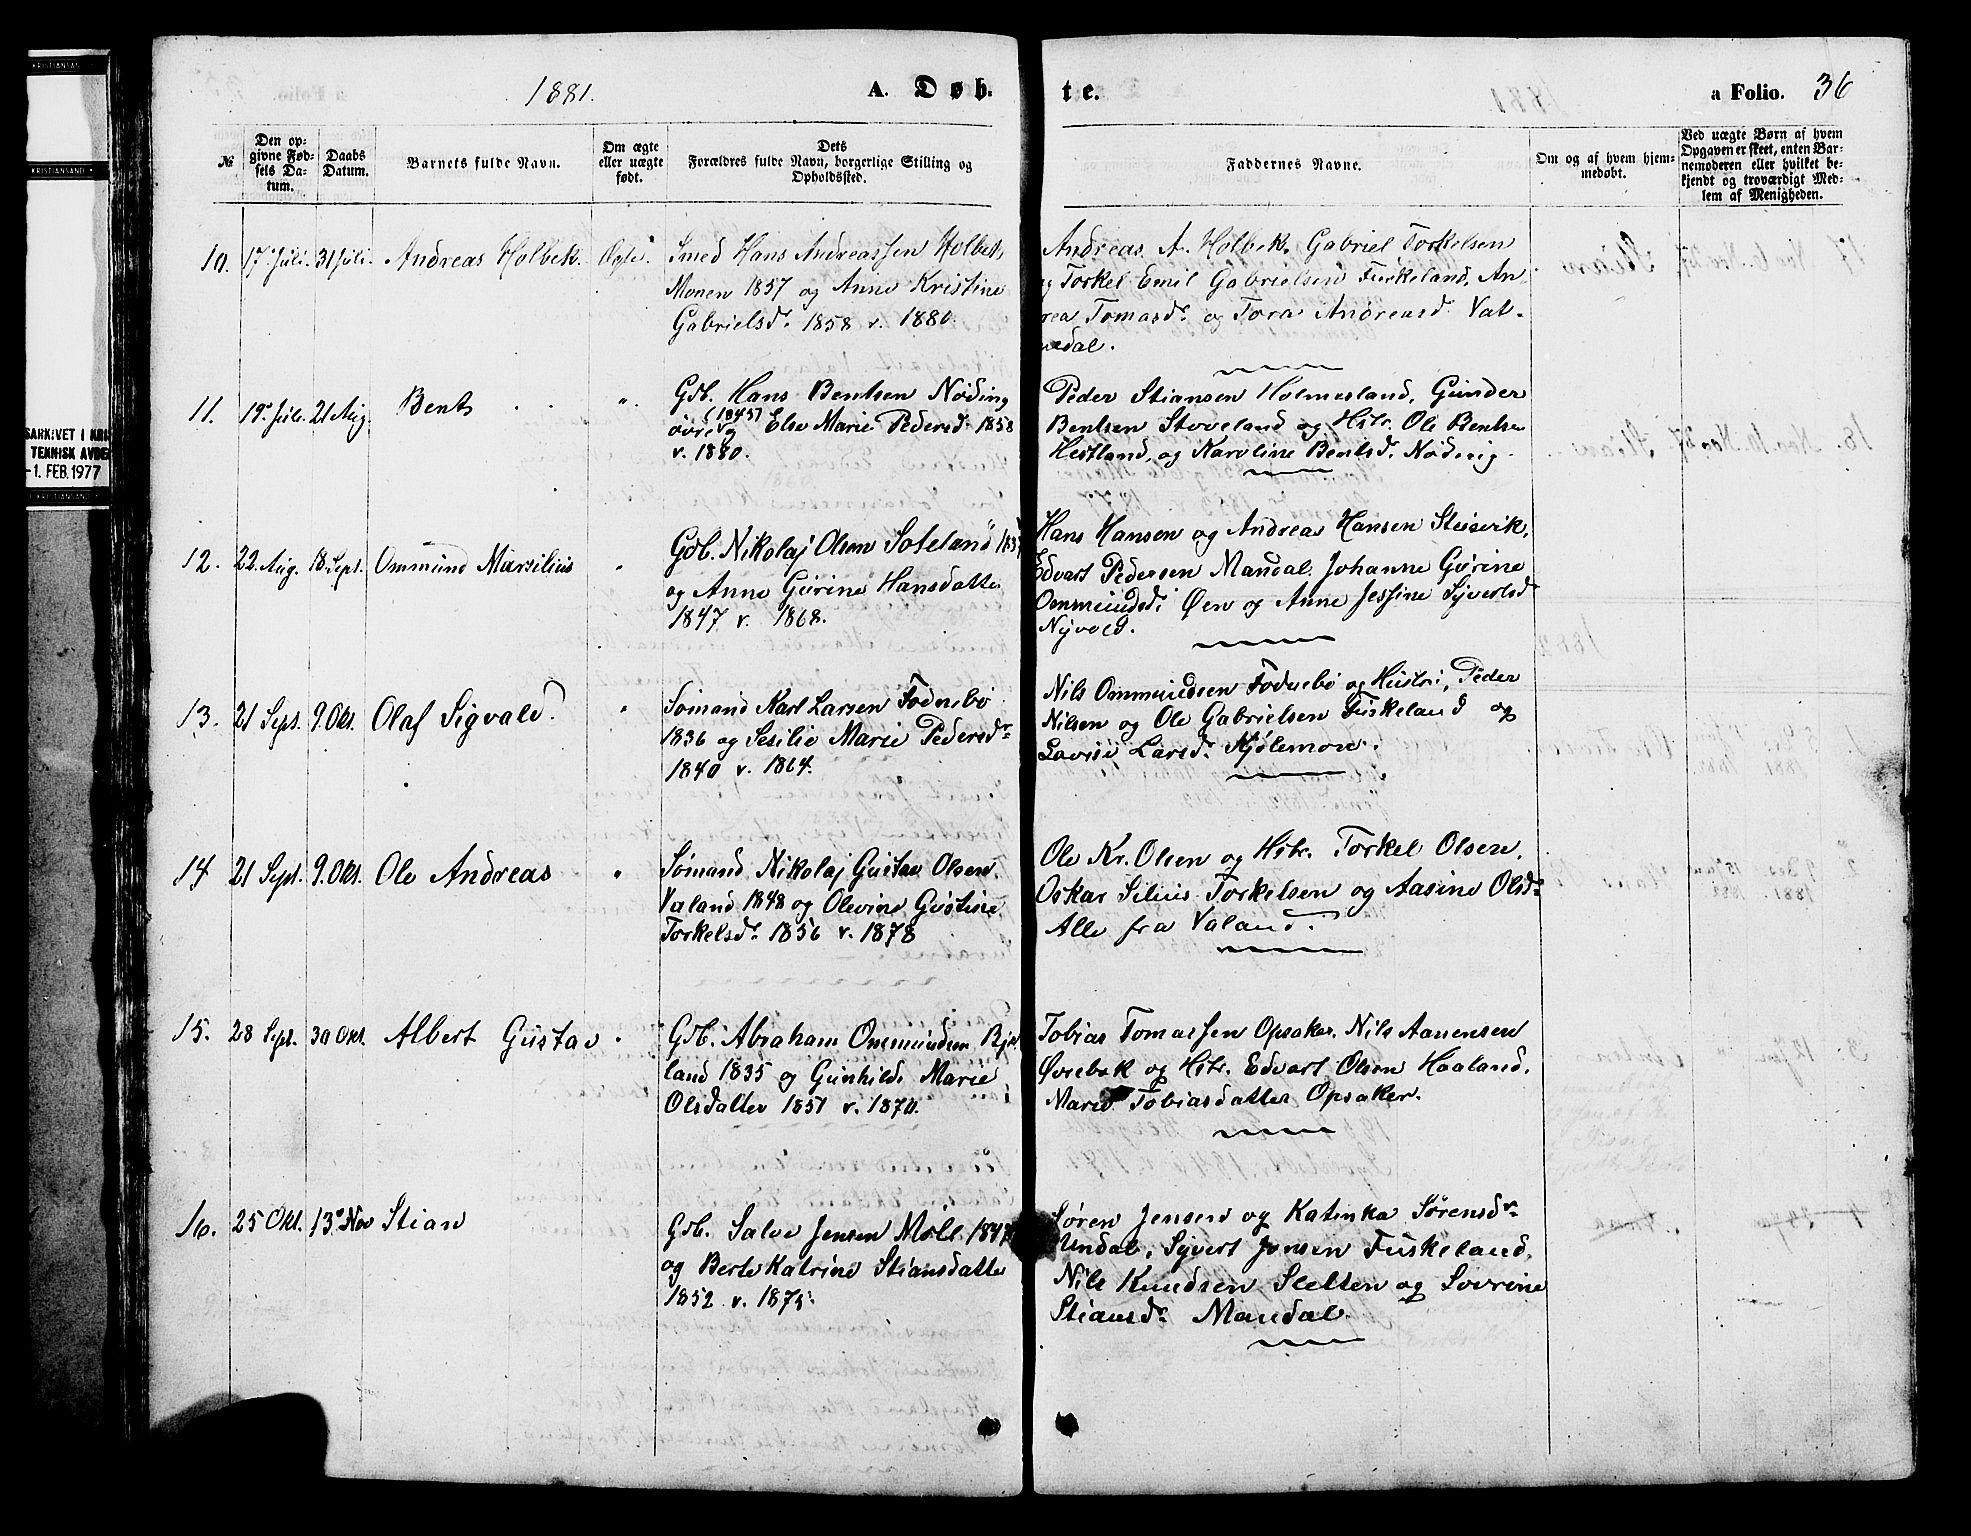 1881.
A. Døb
te.
a Folio. 36
№
Den opgivne Fødsels Datum.
Daabs Datum.
Barnets fulde Navn.
Om ægte eller uægte født.
Dets Forældres fulde Navn, borgerlige Stilling og Opholdssted.
Faddernes Navne.
Om og af hvem hjemmedøbt.
Ved uægte Børn af hvem Opgaven er skeet, enten Barnemoderen eller hvilket bekjendt og troværdigt Medlem af Menigheden.
10. 17 Juli. 31 Juli. Andreas Holbek. Ægte.
Smed Hans Andreassen Holbek,
Monen 1857 og Anne Kristine
Gabrielsd. 1858 v. 1880.
Andreas A. Holbek, Gabriel Torkelsen
og Torkel Emil Gabrielsen Fuskeland, An-
rea Tomasd. og Tora Andreasd. Val-
11. 19 Juli. 21 Aug. Bent
Gdb. Hans Bentsen Nøding
øvre (1845) og Else Marie Pedersd. 1858
v. 1880.
Peder Stiansen Holmesland, Gunder
Bentsen Stoveland og Hstr. Ole Bentsen
Hestland, og Karoline Bentsd. Nøding.
12. 22. Aug. 18 Sept. Ommund Marselius
Gdb. Nikolaj Olsen Soteland
og Anne Gurine Hansdatter
1847 v. 1868.
Hans Hansen og Andreas Hansen Steisvik,
Edvart Pedersen Mandal. Johanne Gurine
Ommundsd. Øen og Anne Jessine Syvertsd.
Nyvold.
13. 21 Sept. 9. Okt. Olaf Sigvald.
Sømand Karl Larsen Fodnebø
1836 og Sesilie Marie Pedersd.
1840 v. 1864.
Nils Ommundsen Fodnebø og Hustru, Peder
Nilsen og Ole Gabrielsen Fuskeland og
Lovise Larsd. Kjølemoe.
14 21 Sept. 9. Okt. Ole Andreas
Sømand Nikolaj Gustav Olsen
Valand 1848 og Olevine Gustine
Torkelsd. 1856 v. 1878
Ole Kr. Olsen og Hstr. Torkel Olsen,
Oskar Silius Torkelsen og Aasine Olsd.
Alle fra Valand.
15. 28 Sept. 30 Okt. Albert Gustav
Gdb. Abraham Ommundsen
land 1835 og Gunhild Marie
Olsdatter 1851 v. 1870.
Tobias Tomassen Opsaker. Nils Aanensen
Øvrebøk og Hstr. Edvart Olsen Haaland.
Marie Tobiasdatter Opsaker.
16. 25 Okt. 13 Nov Stian
Gdb. Salve Jensen Møll 1847
og Berte Katrine Stiansdatter
1852 v. 1875.
Søren Jensen og Katinka Sørensdr.
Undal, Syvert Jensen Fuskeland,
Nils Knudsen Sletten og Sovrine
Stiansd. Mandal.
KRISTIANSAN
KRISTIANSAND
SARKIVET I KRI
TEKNISK AVDE
-1. FEB. 1977
KRISTIANSAND